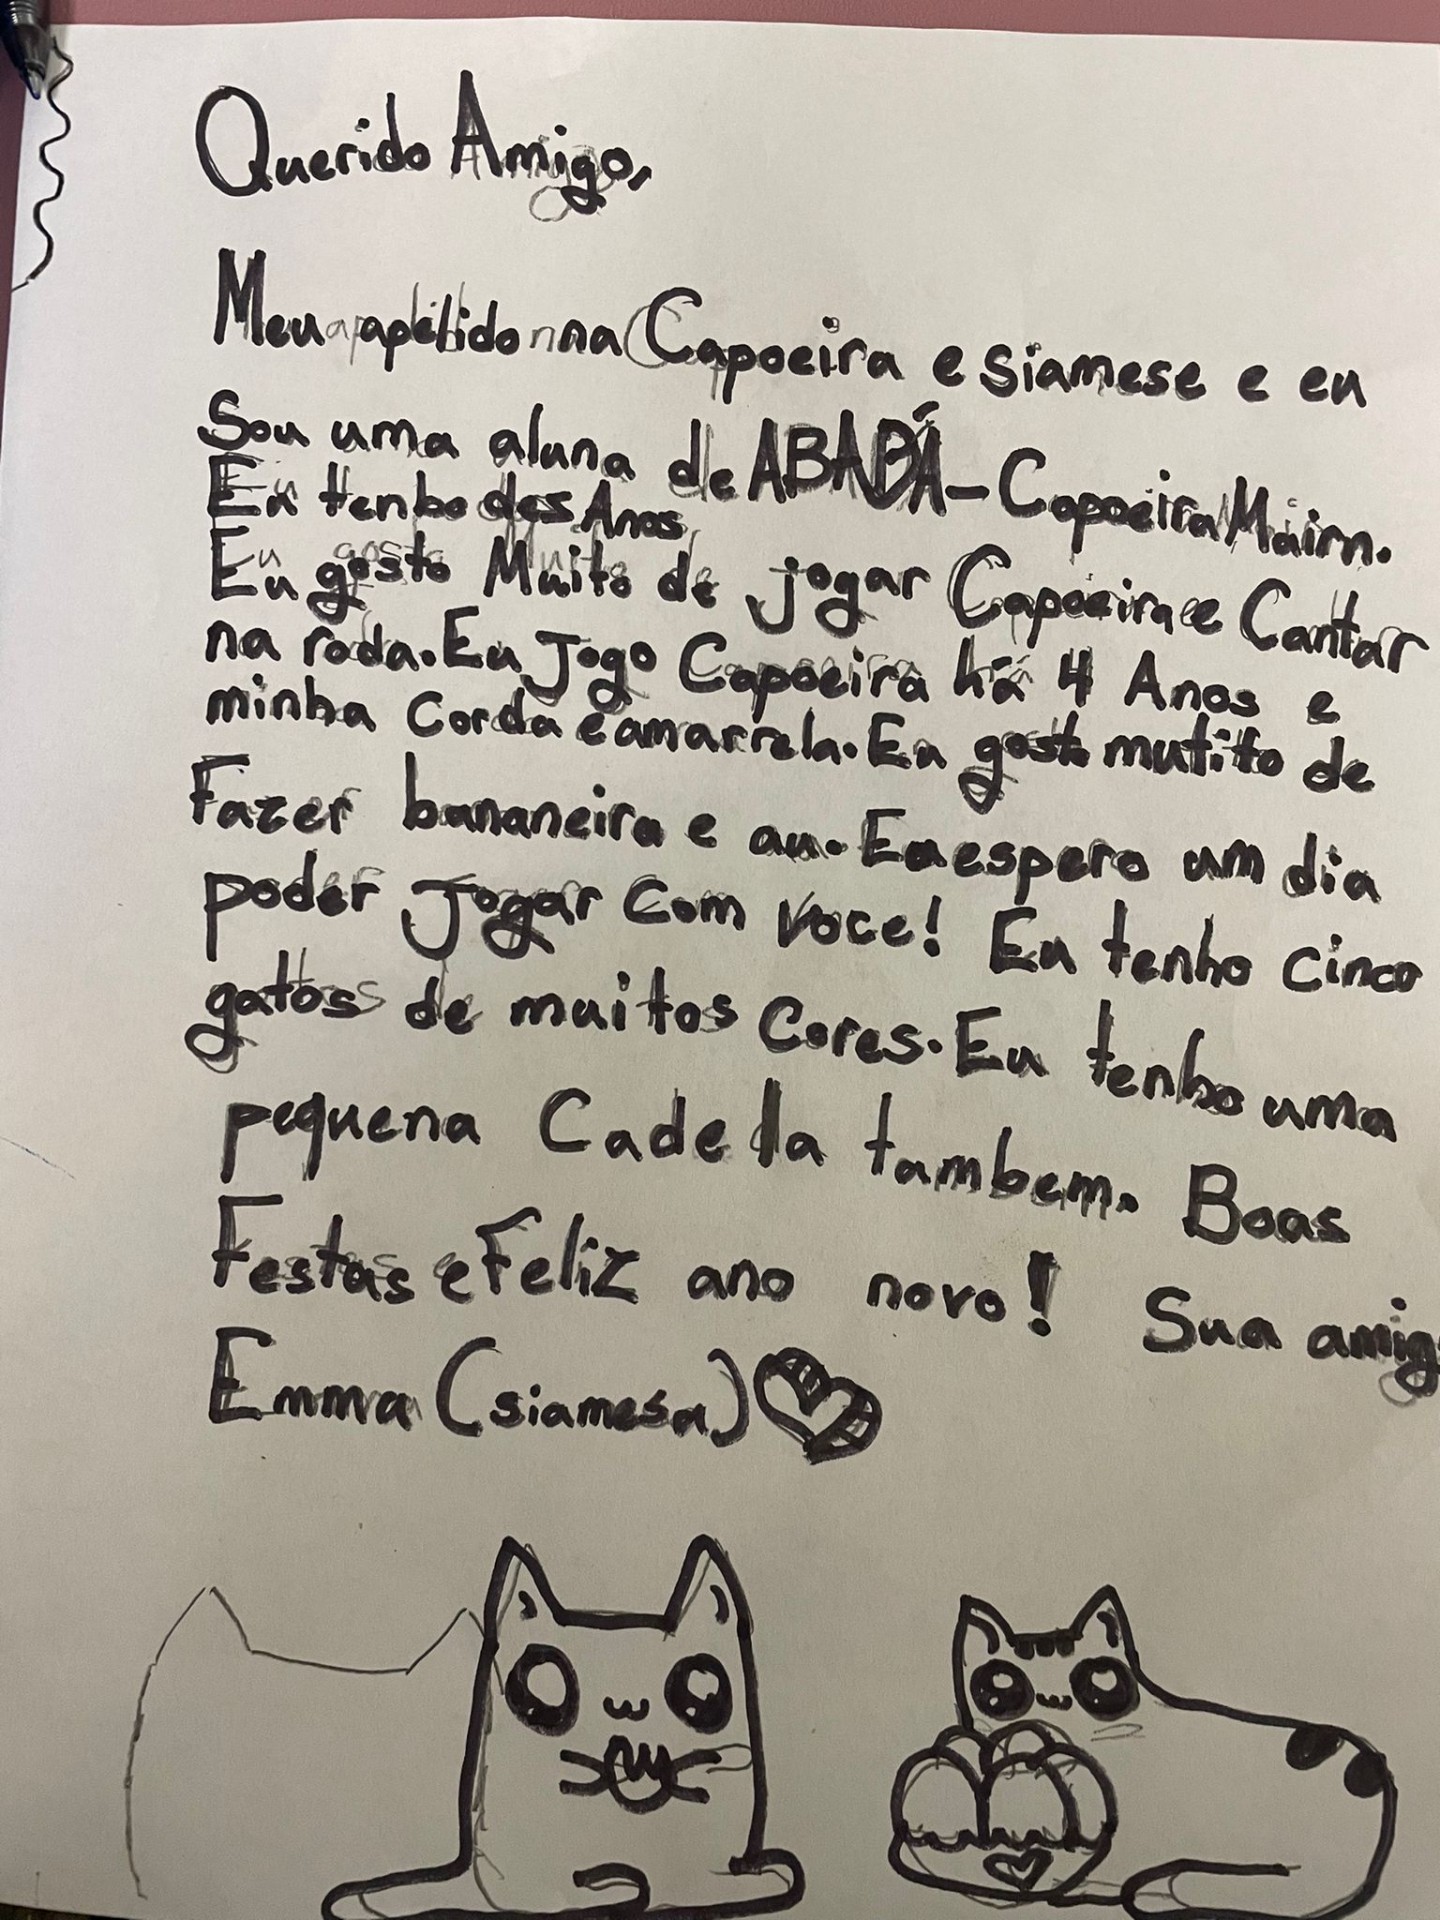 Querido Amigo,
Meu apelido na Capoeira e siamese e eu
Sou uma aluna de ABADÁ-Capoeira Mairn.
Eu tenho des Anos
Eu gosto Muito de jogar Capoeira e Cantar
na roda. Eu Jogo Capoeira há 4 Anos e
minha Corda é amarrela. Eu gosto mutito de
Fazer bananeira e au. Eu espero um dia
poder Jogar Com voce! Eu tenho cinco
gatos de muitos Cores. Eu tenho uma
pequena Cadela tambem. Boas
Festas e Feliz ano novo! Sua amig
Emma (siamesa)